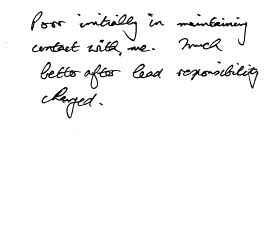 Poor initially in maintaining
contact with, me. Much
better after lead responsibility
changed.